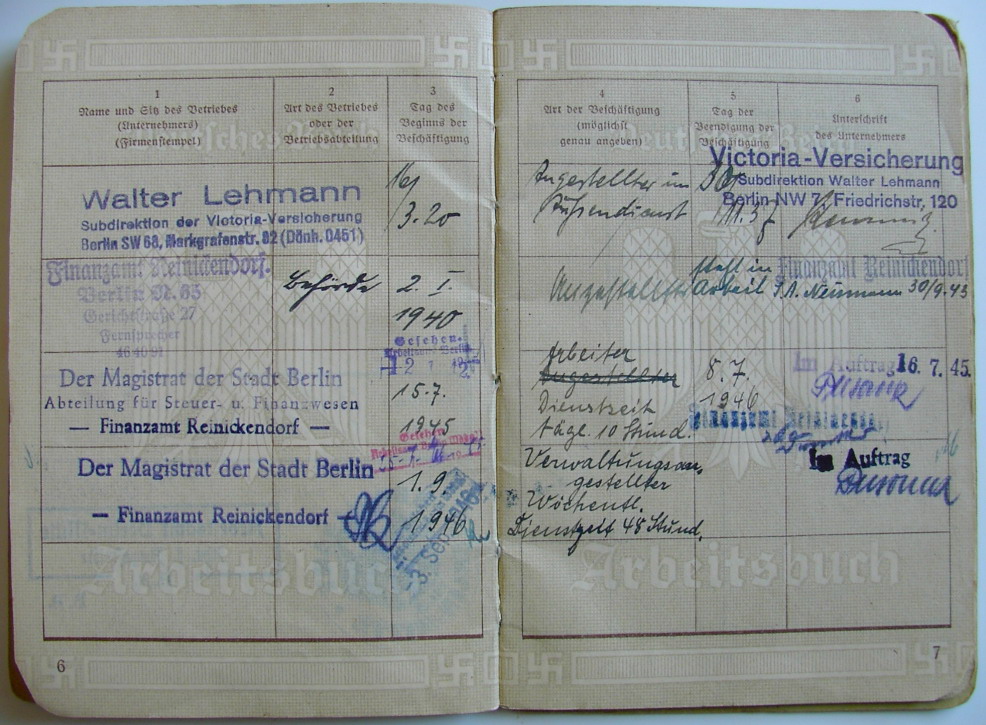 1
Name und Sitz des Betriebes
(Unternehmers)
(Firmenstempel)
2
Art des Betriebes
oder der
Betriebsabteilung
3
Tag des
Beginns der
Beschäftigung
Walter Lehmann
Subdirektion der Victoria-Versicherung
Berlin SW 68, Markgrafenstr. 82 (Dönh. 0451)
16/
/3.20
Finanzamt Reinickendorf.
Berlin N. 65
Gerichtstraße 27
Fernsprecher
Behörde
2. I.
1940
Gesehen
Der Magistrat der Stadt Berlin
Abteilung für Steuer- u. Finanzwesen
— Finanzamt Reinickendorf —
15.7.
1945
Gesehen
Der Magistrat der Stadt Berlin
— Finanzamt Reinickendorf —
1.9.
1946
3. Sep. 1946
Arbeitsbuch
6
4
Art der Beschäftigung
(möglichst
genau angeben)
5
Tag der
Beendigung der
Beschäftigung
6
Unterschrift
des Unternehmers
Angestellter im
Außendienst
30/
11.37
Victoria-Versicherung
Subdirektion Walter Lehmann
Berlin NW 7, Friedrichstr. 120
Angestellter
steht in
Arbeit
Finanzamt Reinickendorf
Neumann 30/9.43
Arbeiter
Angestellter
Dienstzeit
tägl. 10 Stund.
8.7.
1946
Im Auftrag 16.7.45.
Finanzamt Reinickendorf
Verwaltungsan-
gestellter
Wöchentl.
Dienstzeit 48 Stund.
Im Auftrag
Arbeitsbuch
7